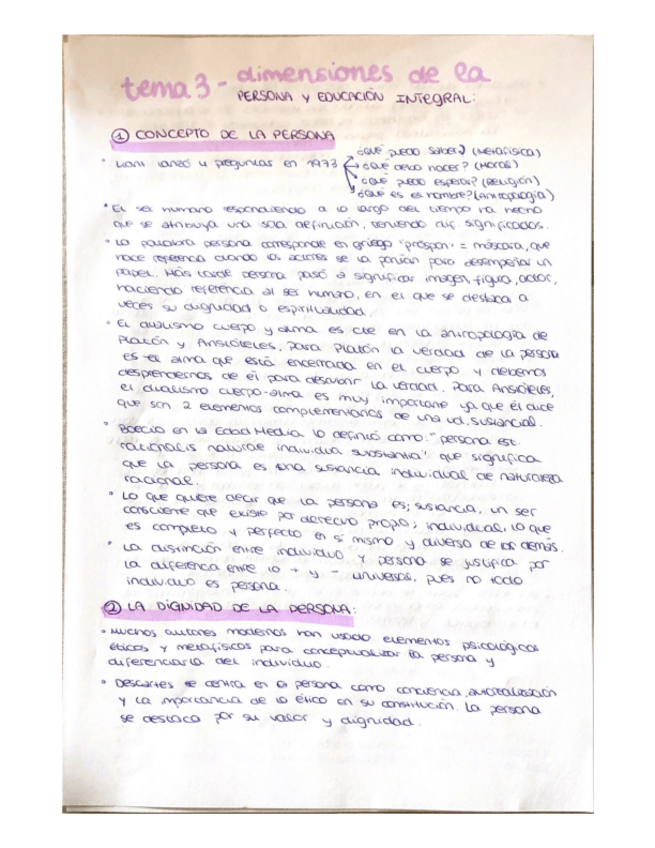 tema 3 - dimensiones de la
PERSONA Y EDUCACIÓN INTEGRAL:
① CONCEPTO DE LA PERSONA
• Kant lanzó 4 preguntas en 1973
¿Qué puedo saber? (Metafísica)
¿Qué debo hacer? (Moral)
¿Qué puedo esperar? (Religión)
¿Qué es el hombre? (Antropología)
• El ser humano respondiendo a lo largo del tiempo ha hecho
que se atribuya una sola definición, teniendo dif. significados.
• La palabra persona corresponde en griego "prósopon" = máscara, que
hace referencia cuando los actores se la ponían para desempeñar un
papel. Más tarde persona pasó a significar imagen, figura, actor,
haciendo referencia al ser humano, en el que se destaca a
veces su dignidad o espiritualidad.
• El dualismo cuerpo y alma es cte en la antropología de
Platón y Aristóteles, para Platón la verdad de la persona
es el alma que está encerrada en el cuerpo y debemos
desprendernos de él para descubrir la verdad. Para Aristóteles,
el dualismo cuerpo-alma es muy importante ya que él dice
que son 2 elementos complementarios de una ud. sustancial.
• Boecio en la Edad Media lo definió como: "persona est
rationalis naturae individua substantia" que significa
que la persona es una sustancia individual de naturaleza
racional.
• Lo que quiere decir que la persona es; sustancia, un ser
consciente que existe por derecho propio; individual, lo que
es completo y perfecto en sí mismo y diverso de los demás.
• La distinción entre individuo y persona se justifica por
la diferencia entre lo + y - universos, pues no todo
individuo es persona.
② LA DIGNIDAD DE LA PERSONA:
• Muchos autores modernos han usado elementos psicológicos
éticos y metafísicos para conceptualizar la persona y
diferenciarla del individuo.
• Descartes se centra en la persona como conciencia, autorrealización
y la importancia de lo ético en su constitución. La persona
se destaca por su valor y dignidad.